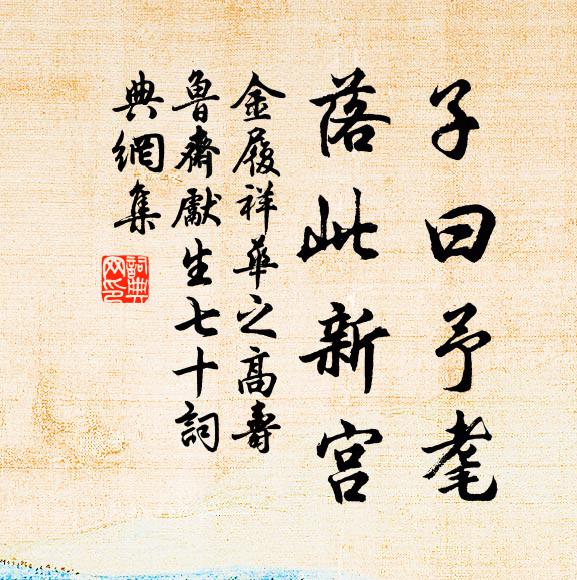 子曰予耄
落此新宫
金履祥華之高壽
魯齋獻生七十詞
典網集
詞典
网印